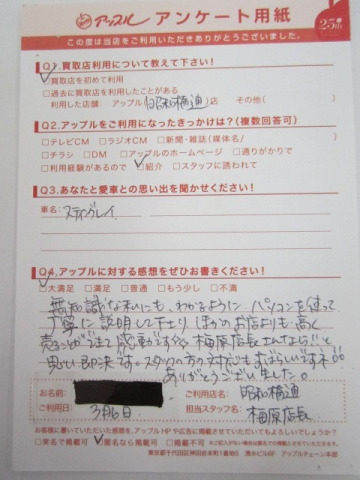 アップル アンケート用紙 25th
この度は当店をご利用いただきありがとうございました。
Q1.買取店利用について教えて下さい!
□買取店を初めて利用
□過去に買取店を利用したことがある
利用した店舗: アップル(昭和橋通)店 その他( )
Q2.アップルをご利用になったきっかけは?(複数回答可)
□テレビCM □ラジオCM □新聞・雑誌(媒体名/ )
□チラシ □DM □アップルのホームページ □通りがかりで
□利用経験があるので □紹介 □スタッフに誘われて
Q3.あなたと愛車との思い出を聞かせください!
車名: スティングレイ
Q4.アップルに対する感想をぜひお書きください!
□大満足 □満足 □普通 □もう少し □不満
無知識な私にも、わかるように パソコンを使って
丁寧に説明して下さり ほかのお店よりも高く
売ることができて感動です。梅原店長さんなら!!と
思い即決です。スタッフの方の対応もすばらしいです!!
ありがとうございました。
お名前:
ご利用日: 3月6日
ご利用店名: 昭和橋通
担当スタッフ名: 梅原店長
お客様に書いていただいた感想を、アップルHPや広告に掲載させていただいてもよろしいでしょうか?
□実名で掲載可 □匿名なら掲載可 □掲載不可 ※ご記入がない場合は匿名での掲載とさせていただきます。
東京都千代田区神田佐木町1番地5 清水ビル6F アップルチェーン本部